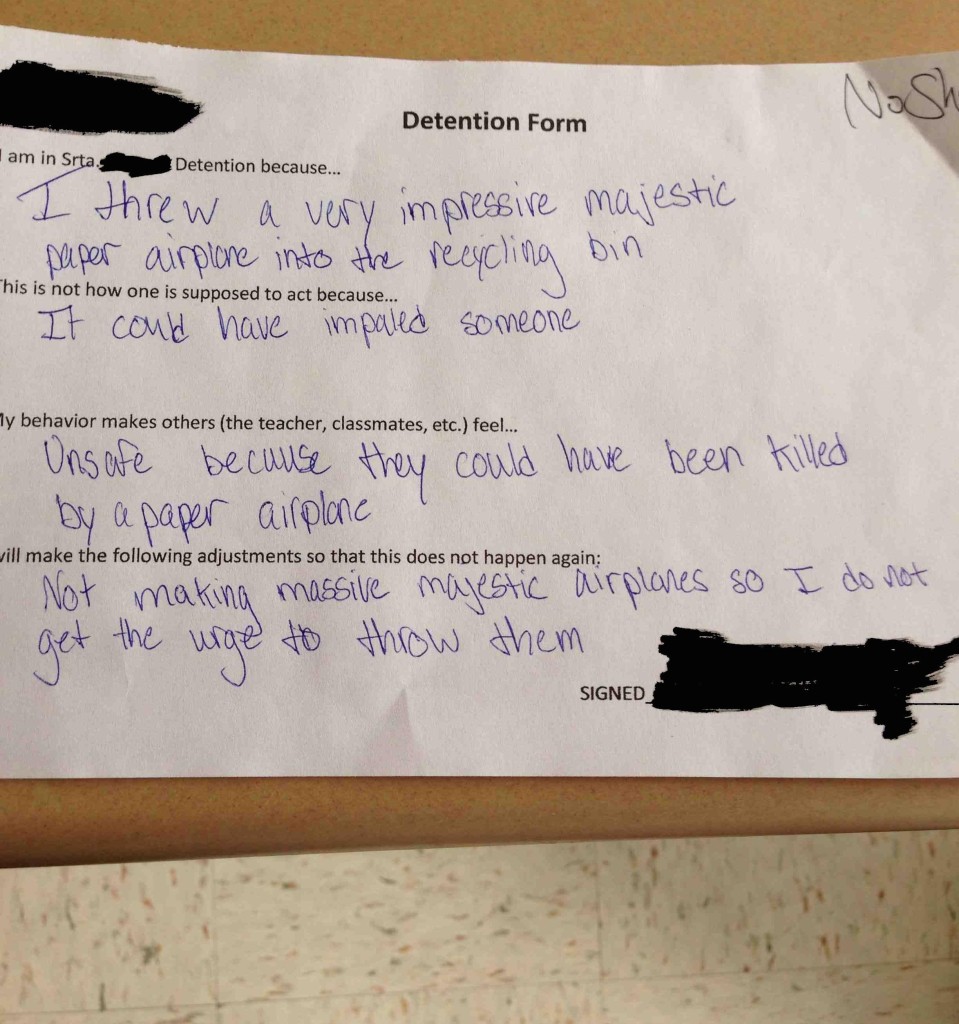 Detention Form
NoSh
I am in Srta. Detention because...
I threw a very impressive majestic
paper airplane into the recycling bin
his is not how one is supposed to act because...
It could have impaled someone
y behavior makes others (the teacher, classmates, etc.) feel...
Unsafe because they could have been killed
by a paper airplane
will make the following adjustments so that this does not happen again:
Not making massive majestic airplanes so I do not
get the urge to throw them
SIGNED